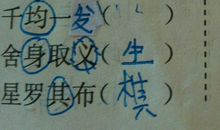 千均一发(　)
舍身取义(生)
星罗其布(棋)